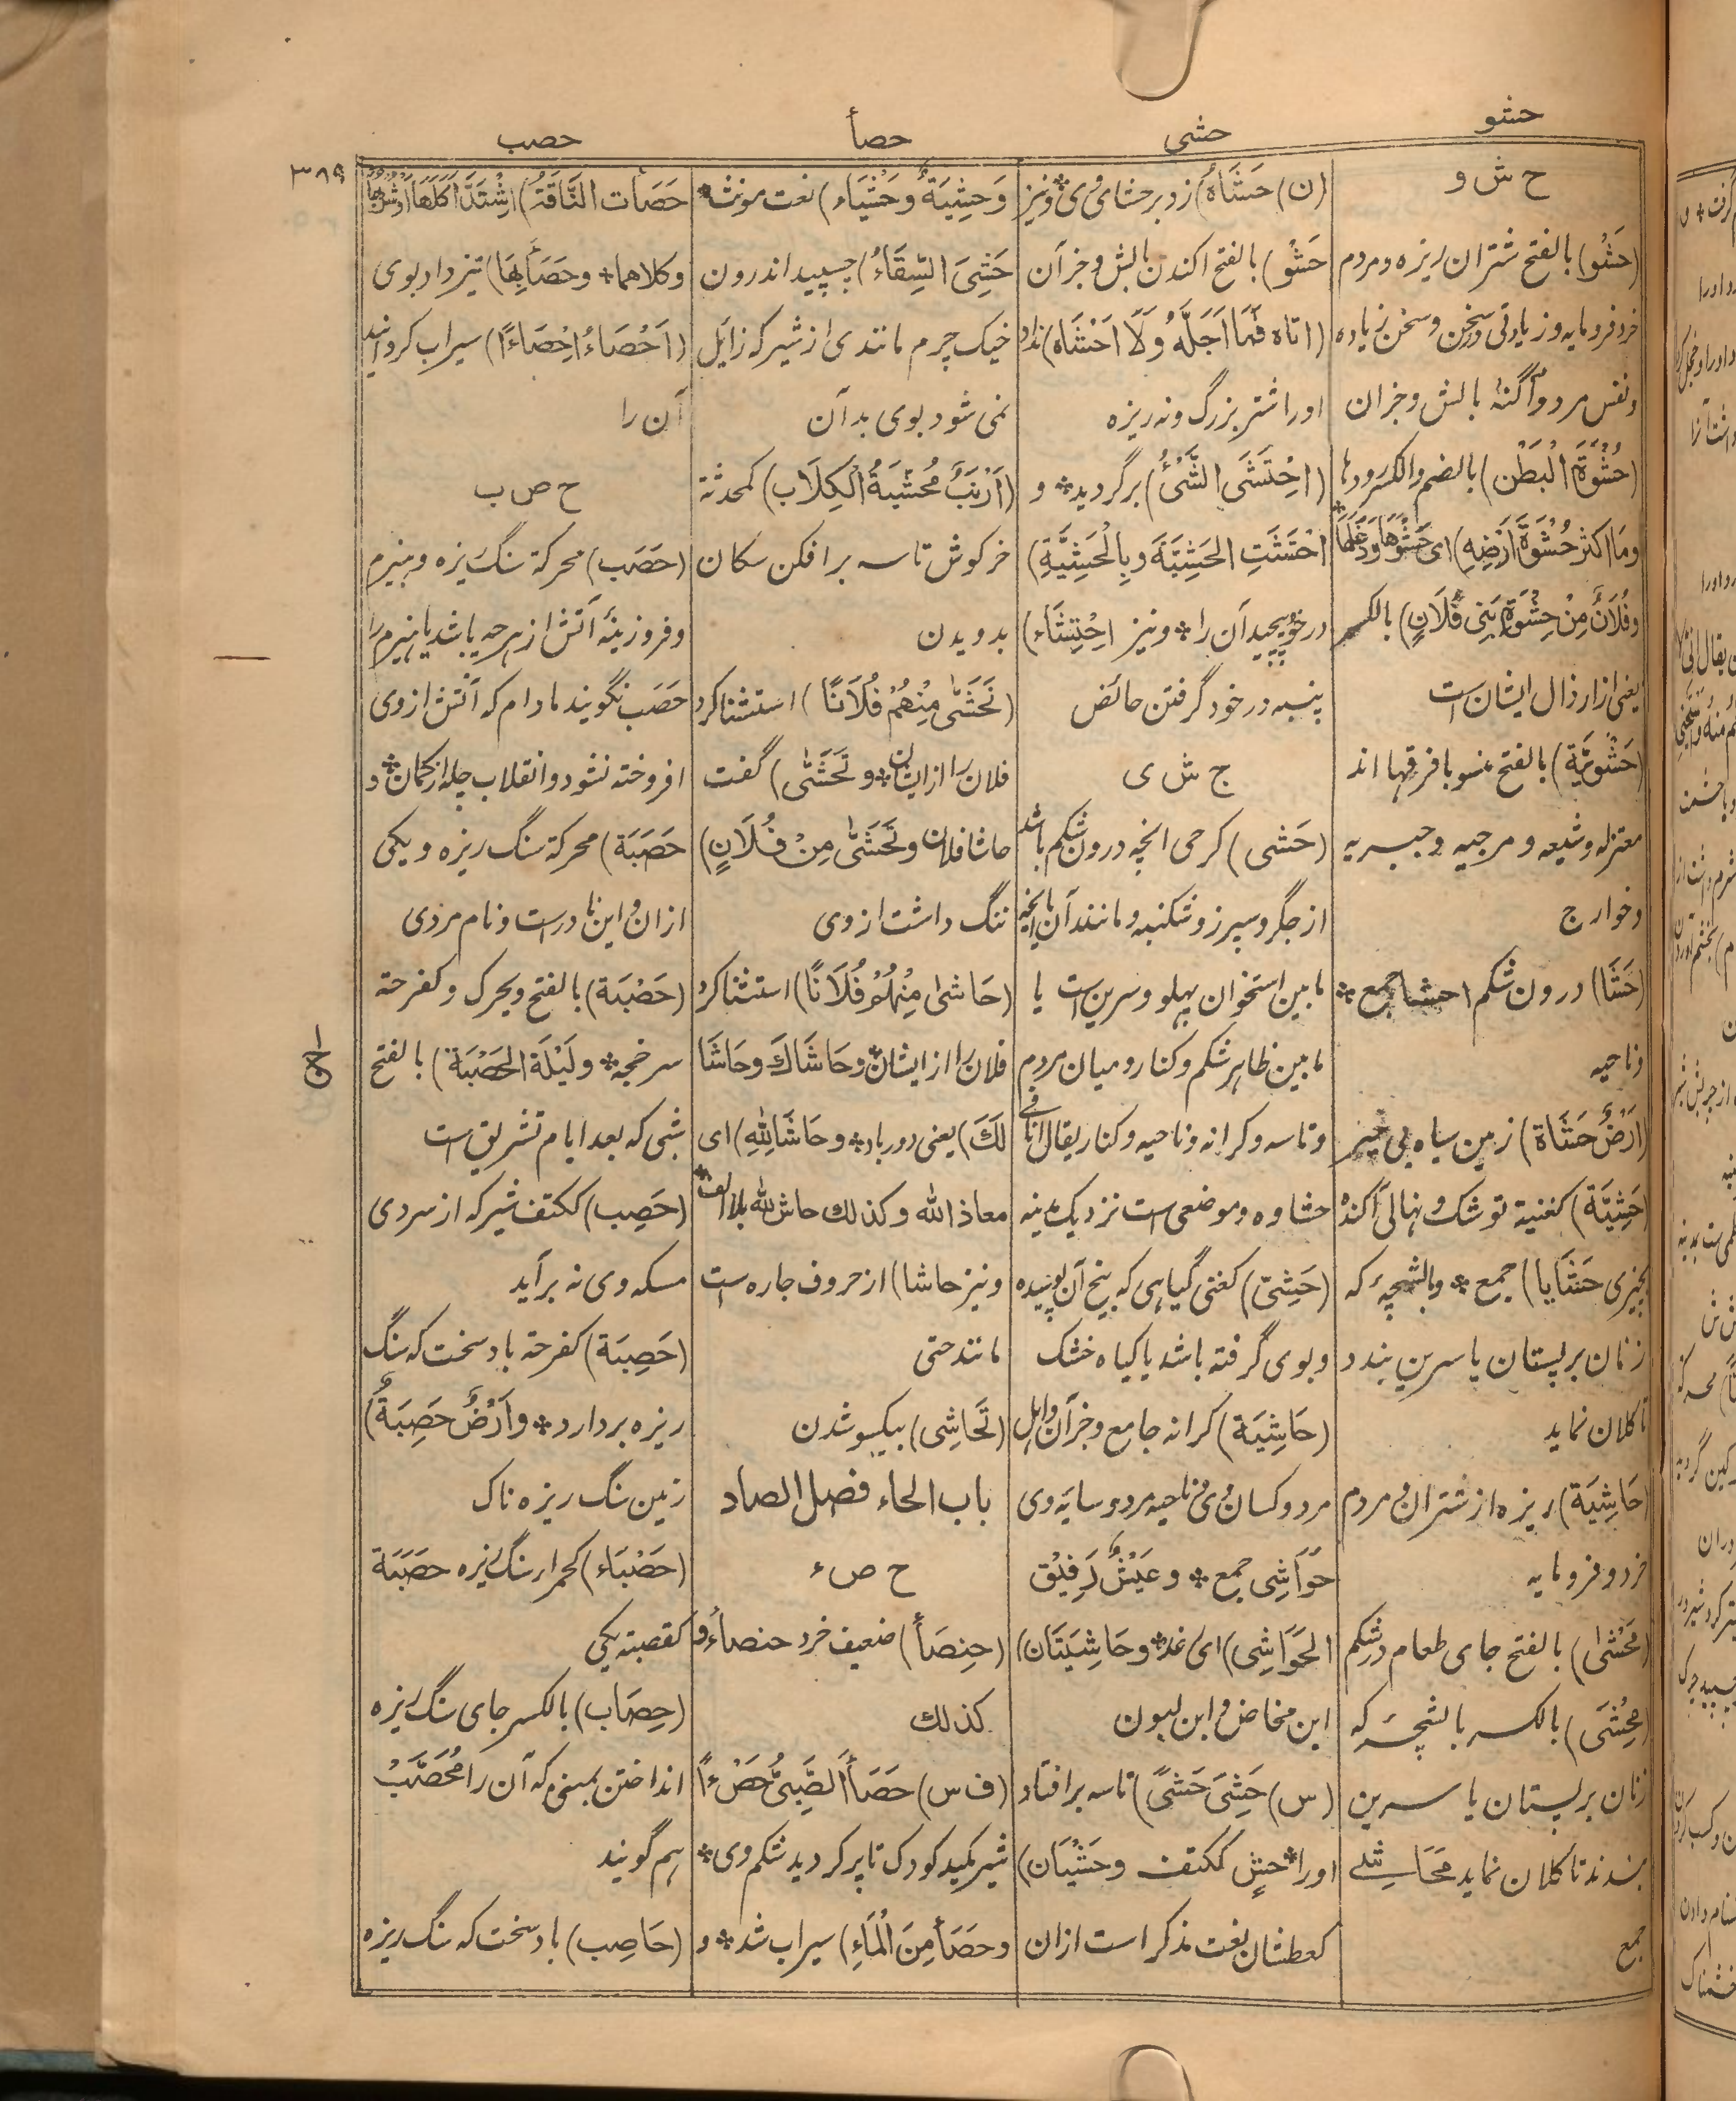 حشو
حشی
حصأ
حصب
۳۸۹
ح ش و
(حَشْو) بالفتح شتران ریزه و مردم
خرد فرومایه و زیادتی در سخن و سخن زیاده
و نفس مرد و آگنهٔ بالش و جز آن
(حُشْوَةُ الْبَطْن) بالضم والکسر رودها
وما اکثر حُشْوَةَ اَرْضِهِ) ای حَشْوَهَا وَدَغَلَهَا
وفُلَانٌ مِنْ حِشْوَةِ بَنِی فُلَانٍ) بالکسر
یعنی از ارذال ایشان است
(حَشْوِیَّة) بالفتح منسوبا فرقها اند
معتزله و شیعه و مرجیه و جبریه
و خوارج
(حَشَا) درون شکم احشا جمع *
و ناحیه
(اَرْضٌ حَشَاة) زمین سیاه بی خیر
(حَشِیَّة) کغنیة توشک و نهالی آکنده
بچیزی حَشَایا) جمع * و بالشچهٔ که
زنان بر پستان یا سرین بندد
تا کلان نماید
(حَاشِیَة) ریزه از شتران و مردم
خرد و فرومایه
(مَحْشٰی) بالفتح جای طعام در شکم
(مِحْشٰی) بالکسر بالشچهٔ که
زنان بر پستان یا سرین
بندند تا کلان نماید مَحَاشِی
جمع
(ن) حَشَاهُ) زد بر حشای وی * و نیز
حَشْو) بالفتح اکندن بالش و جز آن
(اتاه فَمَا اَجَلَّهُ وَلَا اَحْشَاه) نداد
اورا شتر بزرگ و نه ریزه
(اِحْتَشَی الشَّیْءُ) پر گردید * و
اِحْتَشَتِ الْحَشِیَّةَ وبِالْحَشِیَّةِ)
در خود پیچید آن را * و نیز اِحْتِشَاء)
پنبه در خود گرفتن حائض
ح ش ی
(حَشٰی) کرحی انچه درون شکم باشد
از جگر و سپرز و شکنبه و مانند آن یا انچه
مابین استخوان پهلو و سرین است یا
مابین ظاهر شکم و کنار و میان مردم
و تاسه و کرانه و ناحیه و کنار یقال انا فی
حشاوه و موضعی است نزدیک مدینه
(حَشِیّ) کغنی گیاهی که بیخ آن پوسیده
و بوی گرفته باشد یا گیاه خشک
(حَاشِیَة) کرانه جامه و جز آن و اهل
مرد و کسان وی و ناحیه مرد و سایه وی
حَوَاشِی جمع * و عَیْشٌ رَفِیْقُ
الحَوَاشِی) ای رغد * وحَاشِیَتَان)
ابن مخاض و ابن لبون
(س) حَشِیَ حَشًی) تاسه بر افتاد
اورا * حشٍ ککتف وحَشْیَان)
کعطشان نعت مذکر است ازان
وَحَشِیَةٌ وَحَشْیَاء) نعت مونث *
حَشِیَ السِّقَاءُ) چسپید اندرون
خیک چرم مانندی از شیر که زایل
نمی شود بوی بد آن
(اَرْنَبٌ مُحَشِّیَةُ الْکِلَاب) کمحدثة
خرکوش تاسه برافکن سگان
بدویدن
(تَحَشّٰی مِنْهُمْ فُلَانًا) استثنا کرد
فلان را از ایشان * و تَحَشّٰی) گفت
حاشا فلان وتَحَشّٰی مِنْ فُلَانٍ)
ننگ داشت از وی
(حَاشٰی مِنْهُمْ فُلَانًا) استثنا کرد
فلان را از ایشان * وحَاشَاكَ وحَاشَا
لَكَ) یعنی دور باد * وحَاشَا لِلّٰهِ) ای
معاذ الله وکذلك حاش لله بلا الف *
و نیز حاشا) از حروف جاره است
مانند حتی
(تَحَاشِی) بیکسو شدن
باب الحاء فصل الصاد
ح ص ء
(حِنْصَأ) ضعیف خرد حنصأوة
کذلك
(ف س) حَصَأَ الصَّبِیُّ حَصْءًا)
شیر مکید کودک تا پر کردید شکم وی *
وحَصَأَ مِنَ الْمَاءِ) سیراب شد * و
حَصَأَت النَّاقَةُ) اِشْتَدَّ اَکْلُهَا اَوْ شُرْبُهَا
وکلاهما * وحَصَأَ بِهَا) تیز داد بوی
(اَحْصَاءُ اِحْصَاءًا) سیراب کردانید
آن را
ح ص ب
(حَصَب) محرکة سنگ ریزه و هیزم
و فروزینهٔ آتش از هرچه باشد یا هیزم را
حَصَب نگویند مادام که آتش از وی
افروخته نشود و انقلاب چله از کمان * و
حَصَبَة) محرکة سنگ ریزه و یکی
ازان و این نادر است و نام مردی
(حَصْبَة) بالفتح ویحرک و کفرحة
سرخجه * ولَیْلَة الْحَصْبَة) بالفتح
شبی که بعد ایام تشریق است
(حَصِب) ککتف شیر که از سردی
مسکه وی نه برآید
(حَصِبَة) کفرحة باد سخت که سنگ
ریزه بردارد * واَرْضٌ حَصِبَةٌ)
زمین سنگ ریزه ناک
(حَصْبَاء) کحمراء سنگ ریزه حَصَبَة
کقصبة یکی
(حِصَاب) بالکسر جای سنگ ریزه
انداختن بمنی که آن را مُحَصَّبْ
هم گویند
(حَاصِب) باد سخت که سنگ ریزه